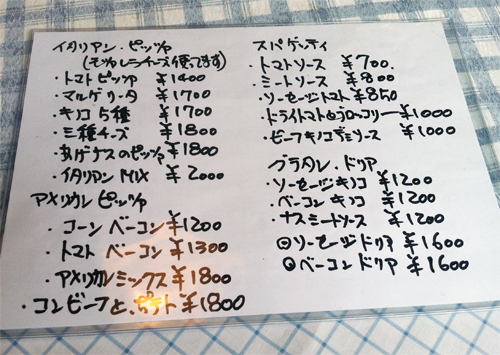 イタリアン・ピッツァ
(モッツァレラチーズ使ってます)
・トマトピッツァ ¥1400
・マルゲリータ ¥1700
・キノコ5種 ¥1700
・三種チーズ ¥1800
・あげナスのピッツァ ¥1800
・イタリアンMIX ¥2000
アメリカンピッツァ
・コーンベーコン ¥1200
・トマトベーコン ¥1300
・アメリカンミックス ¥1800
・コンビーフと、ポテト ¥1800
スパゲッティ
・トマトソース ¥700.
・ミートソース ¥800
・ソーセージトマト ¥850
・ドライトマトとブロッコリー ¥1000
・ビーフキノコデミソース ¥1000
グラタン、ドリア
・ソーセージキノコ ¥1200
・ベーコンキノコ ¥1200
・ナスミートソース ¥1200
⊙ソーセージドリア ¥1600
⊙ベーコンドリア ¥1600